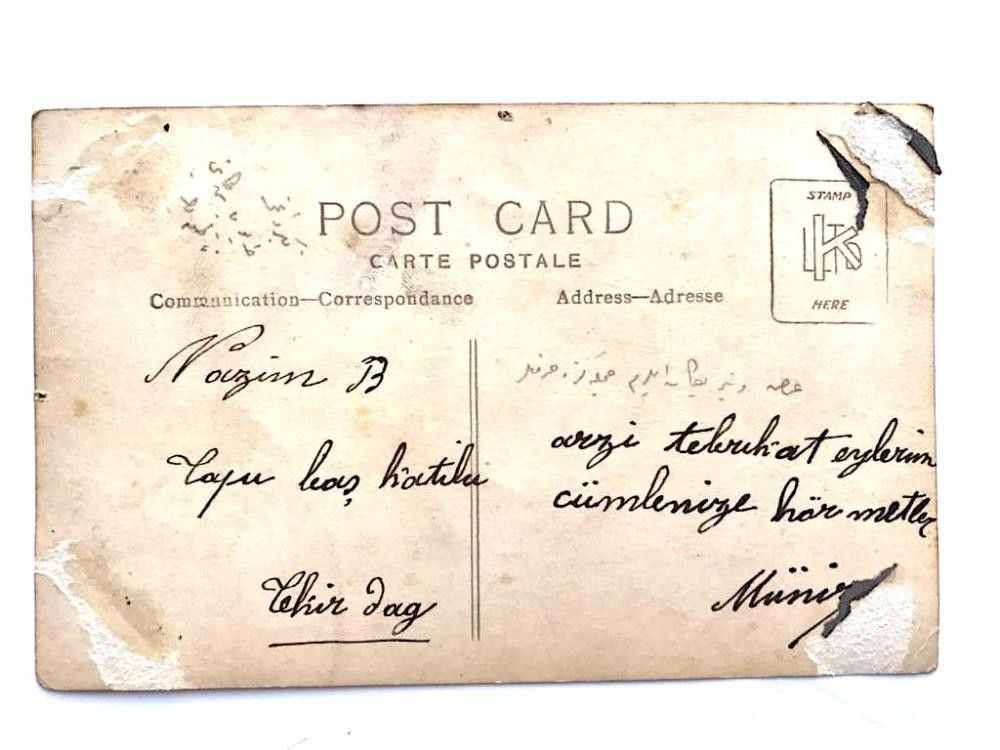 POST CARD
CARTE POSTALE
Communication—Correspondance
Address—Adresse
STAMP
HERE
Nazim B
Tapu baş kâtibi
Tekir dag
arzi tebrikat eylerim
cümlenize hörmetler
Münir